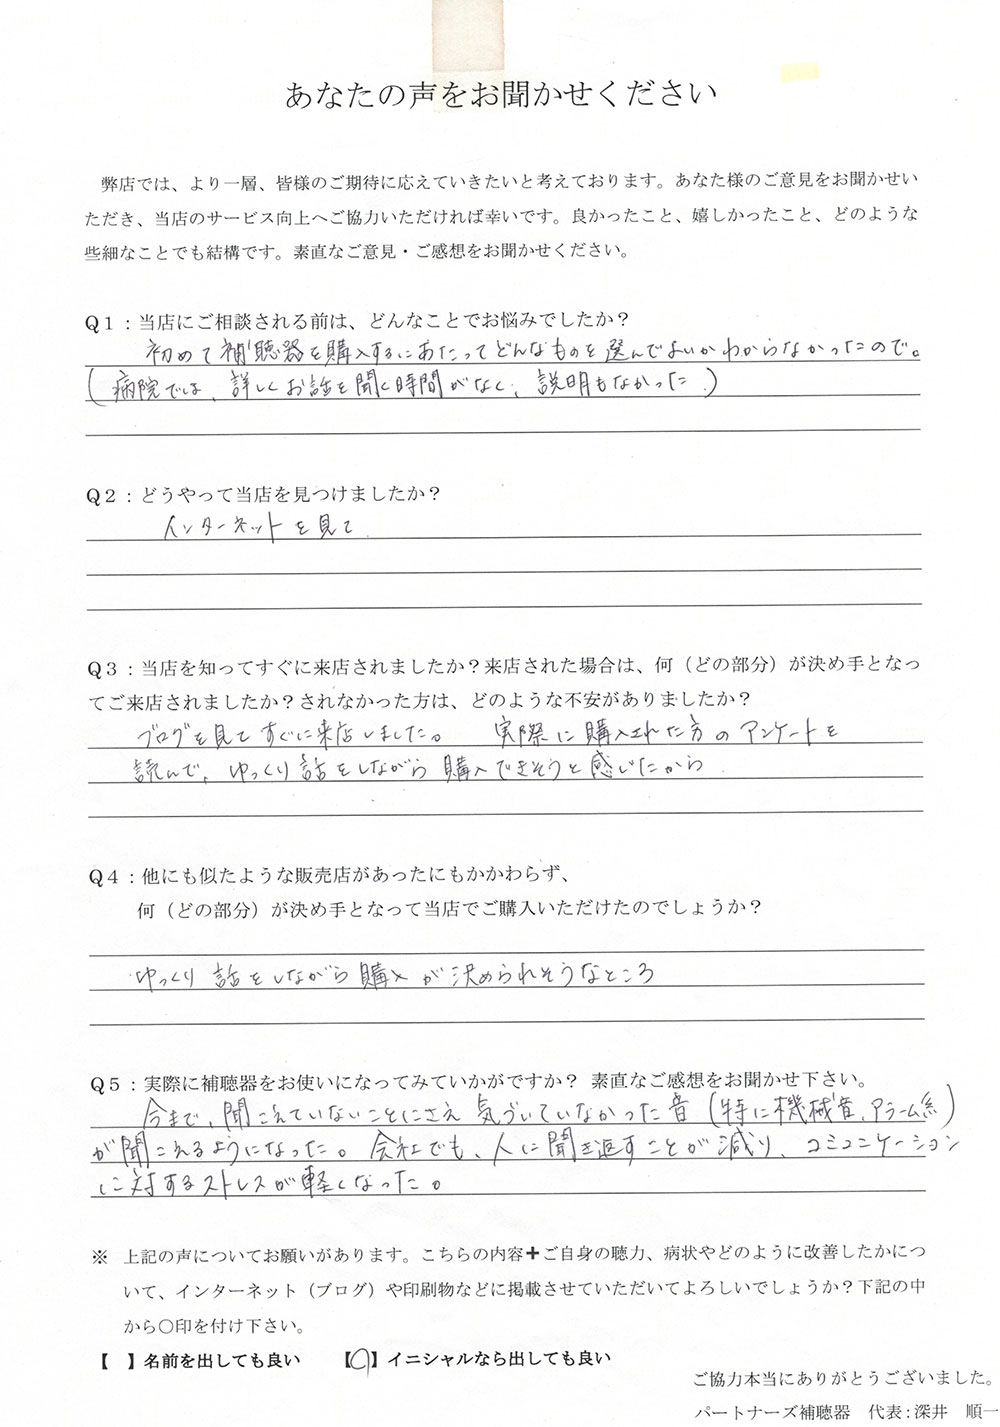 あなたの声をお聞かせください
弊店では、より一層、皆様のご期待に応えていきたいと考えております。あなた様のご意見をお聞かせい
ただき、当店のサービス向上へご協力いただければ幸いです。良かったこと、嬉しかったこと、どのような
些細なことでも結構です。素直なご意見・ご感想をお聞かせください。
Q1：当店にご相談される前は、どんなことでお悩みでしたか？
初めて補聴器を購入するにあたってどんなものを選んでよいかわからなかったので。
（病院では、詳しくお話を聞く時間がなく、説明もなかった）
Q2：どうやって当店を見つけましたか？
インターネットを見て
Q3：当店を知ってすぐに来店されましたか？来店された場合は、何（どの部分）が決め手となっ
てご来店されましたか？されなかった方は、どのような不安がありましたか？
ブログを見てすぐに来店しました。 実際に購入された方のアンケートを
読んで、ゆっくり話をしながら購入できそうと感じたから
Q4：他にも似たような販売店があったにもかかわらず、
何（どの部分）が決め手となって当店でご購入いただけたのでしょうか？
ゆっくり話をしながら購入が決められそうなところ
Q5：実際に補聴器をお使いになってみていかがですか？ 素直なご感想をお聞かせ下さい。
今まで、聞こえていないことにさえ気づいていなかった音（特に機械音、アラーム系）
が聞こえるようになった。会社でも、人に聞き返すことが減り、コミュニケーション
に対するストレスが軽くなった。
※ 上記の声についてお願いがあります。こちらの内容＋ご自身の聴力、病状やどのように改善したかにつ
いて、インターネット（ブログ）や印刷物などに掲載させていただいてよろしいでしょうか？下記の中
から○印を付け下さい。
【 】名前を出しても良い 【○】イニシャルなら出しても良い
ご協力本当にありがとうございました。
パートナーズ補聴器 代表：深井 順一